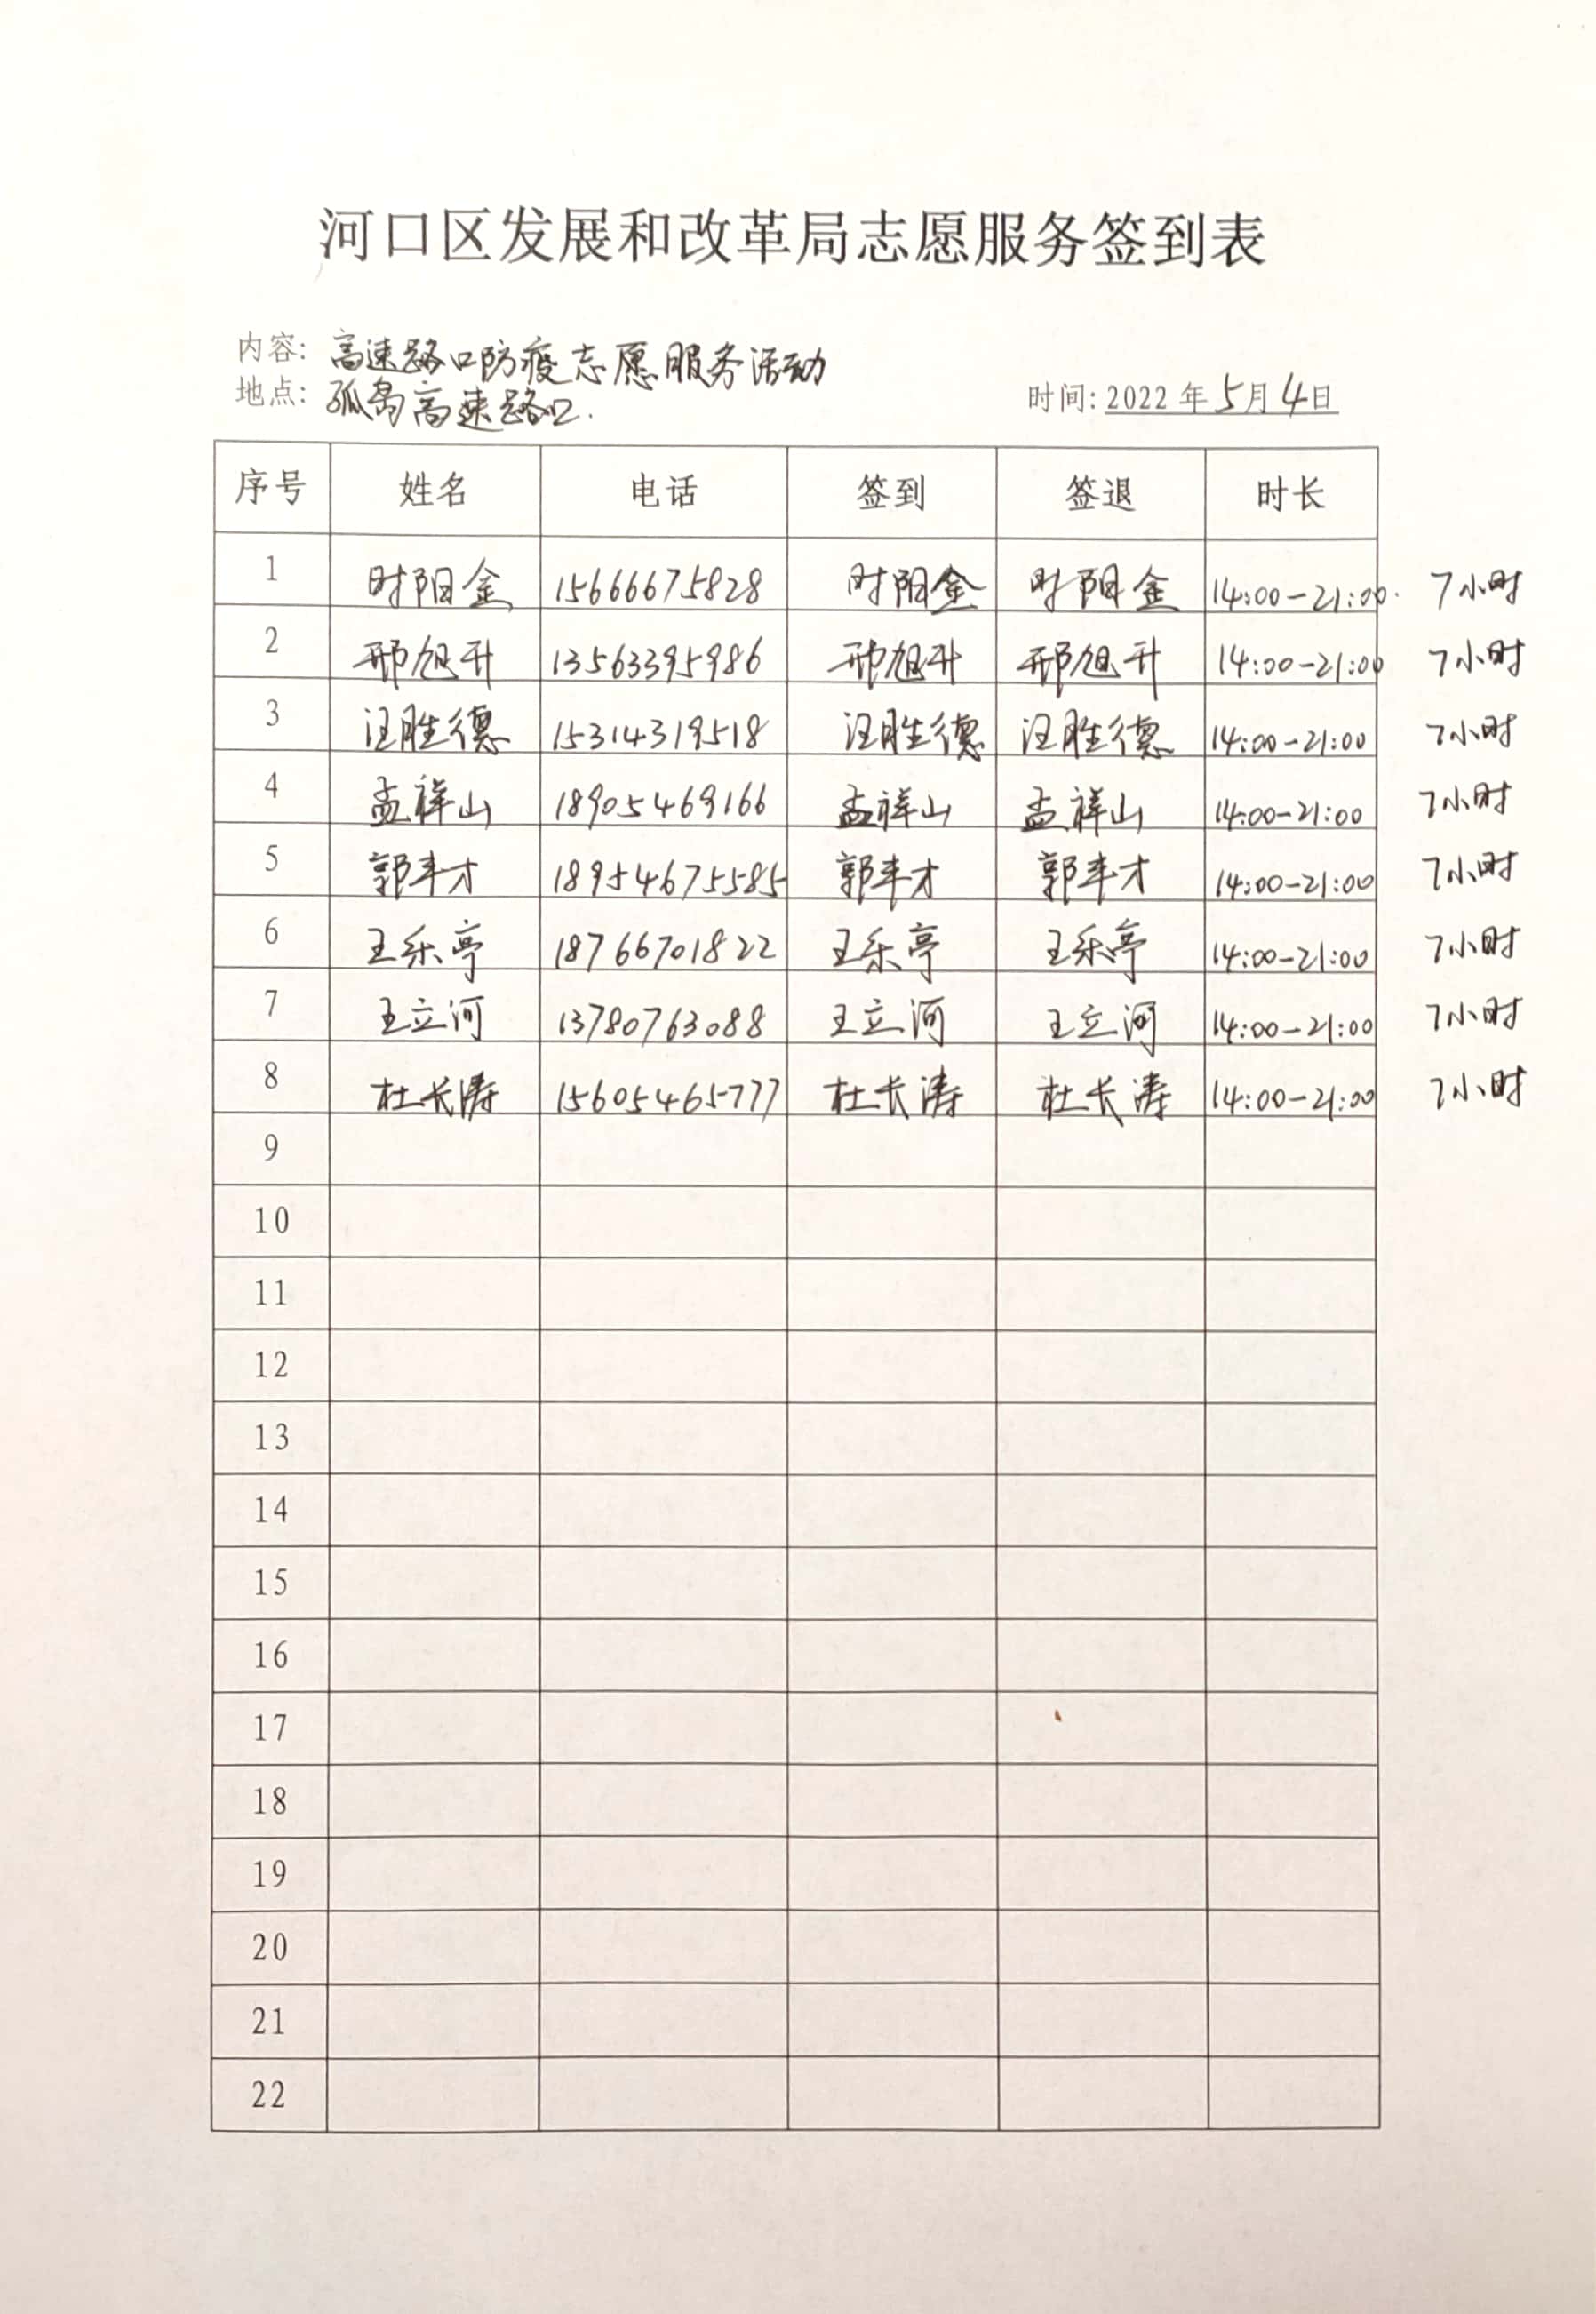 河口区发展和改革局志愿服务签到表
内容: 高速路口防疫志愿服务活动
地点: 孤岛高速路口.
时间: 2022 年 5 月 4 日
序号 姓名 电话 签到 签退 时长
1 时阳金 15666675828 时阳金 时阳金 14:00-21:00. 7小时
2 邢旭升 13563395986 邢旭升 邢旭升 14:00-21:00 7小时
3 汪胜德 15314319518 汪胜德 汪胜德 14:00-21:00 7小时
4 孟祥山 18905469166 孟祥山 孟祥山 14:00-21:00 7小时
5 郭丰才 18954675585 郭丰才 郭丰才 14:00-21:00 7小时
6 王乐亭 18766701822 王乐亭 王乐亭 14:00-21:00 7小时
7 王立河 13780763088 王立河 王立河 14:00-21:00 7小时
8 杜长涛 15605465777 杜长涛 杜长涛 14:00-21:00 7小时
9
10
11
12
13
14
15
16
17
18
19
20
21
22